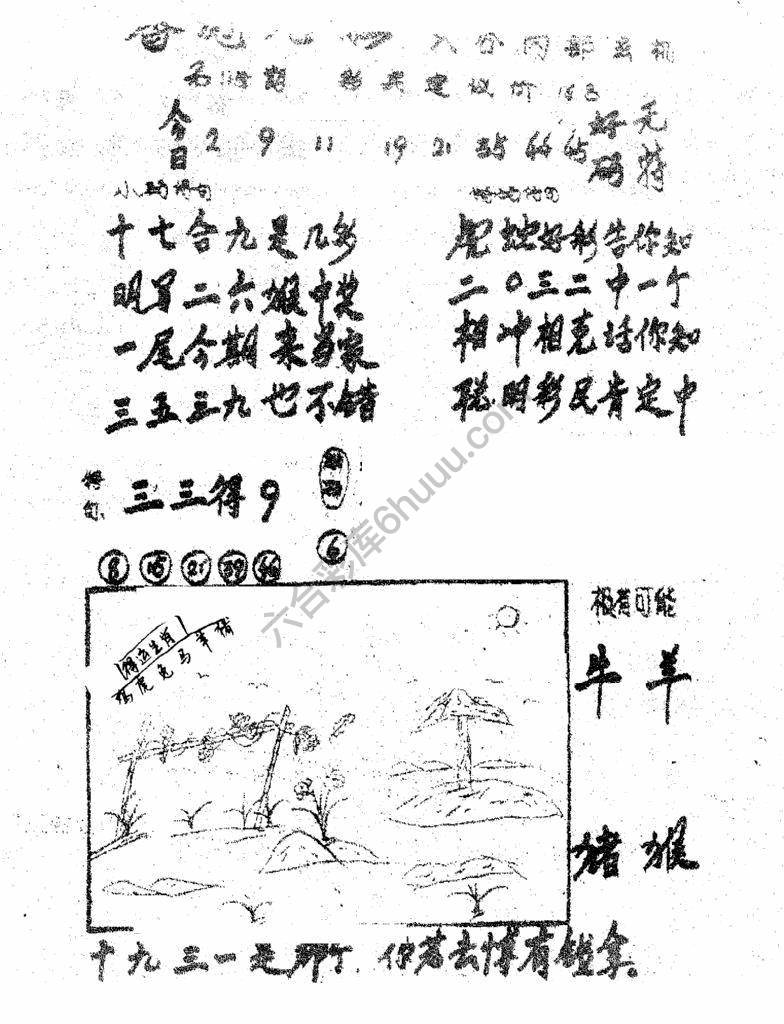 六合内部玄机
今日 2 9 11 19 21 35 44 45 好码 无特
十七合九是几多
明显二六猴中奖
一尾今期来当家
三五三九也不错
好彩告你知
二〇三二中一个
相冲相克话你知
聪明彩民肯定中
三三得9
6
8 15 21 39 46
得运生肖
虎兔马羊猪
极有可能
牛 羊
猪 猴
十九三一是那个，你若去博有钱拿。
六合彩库6huuu.com